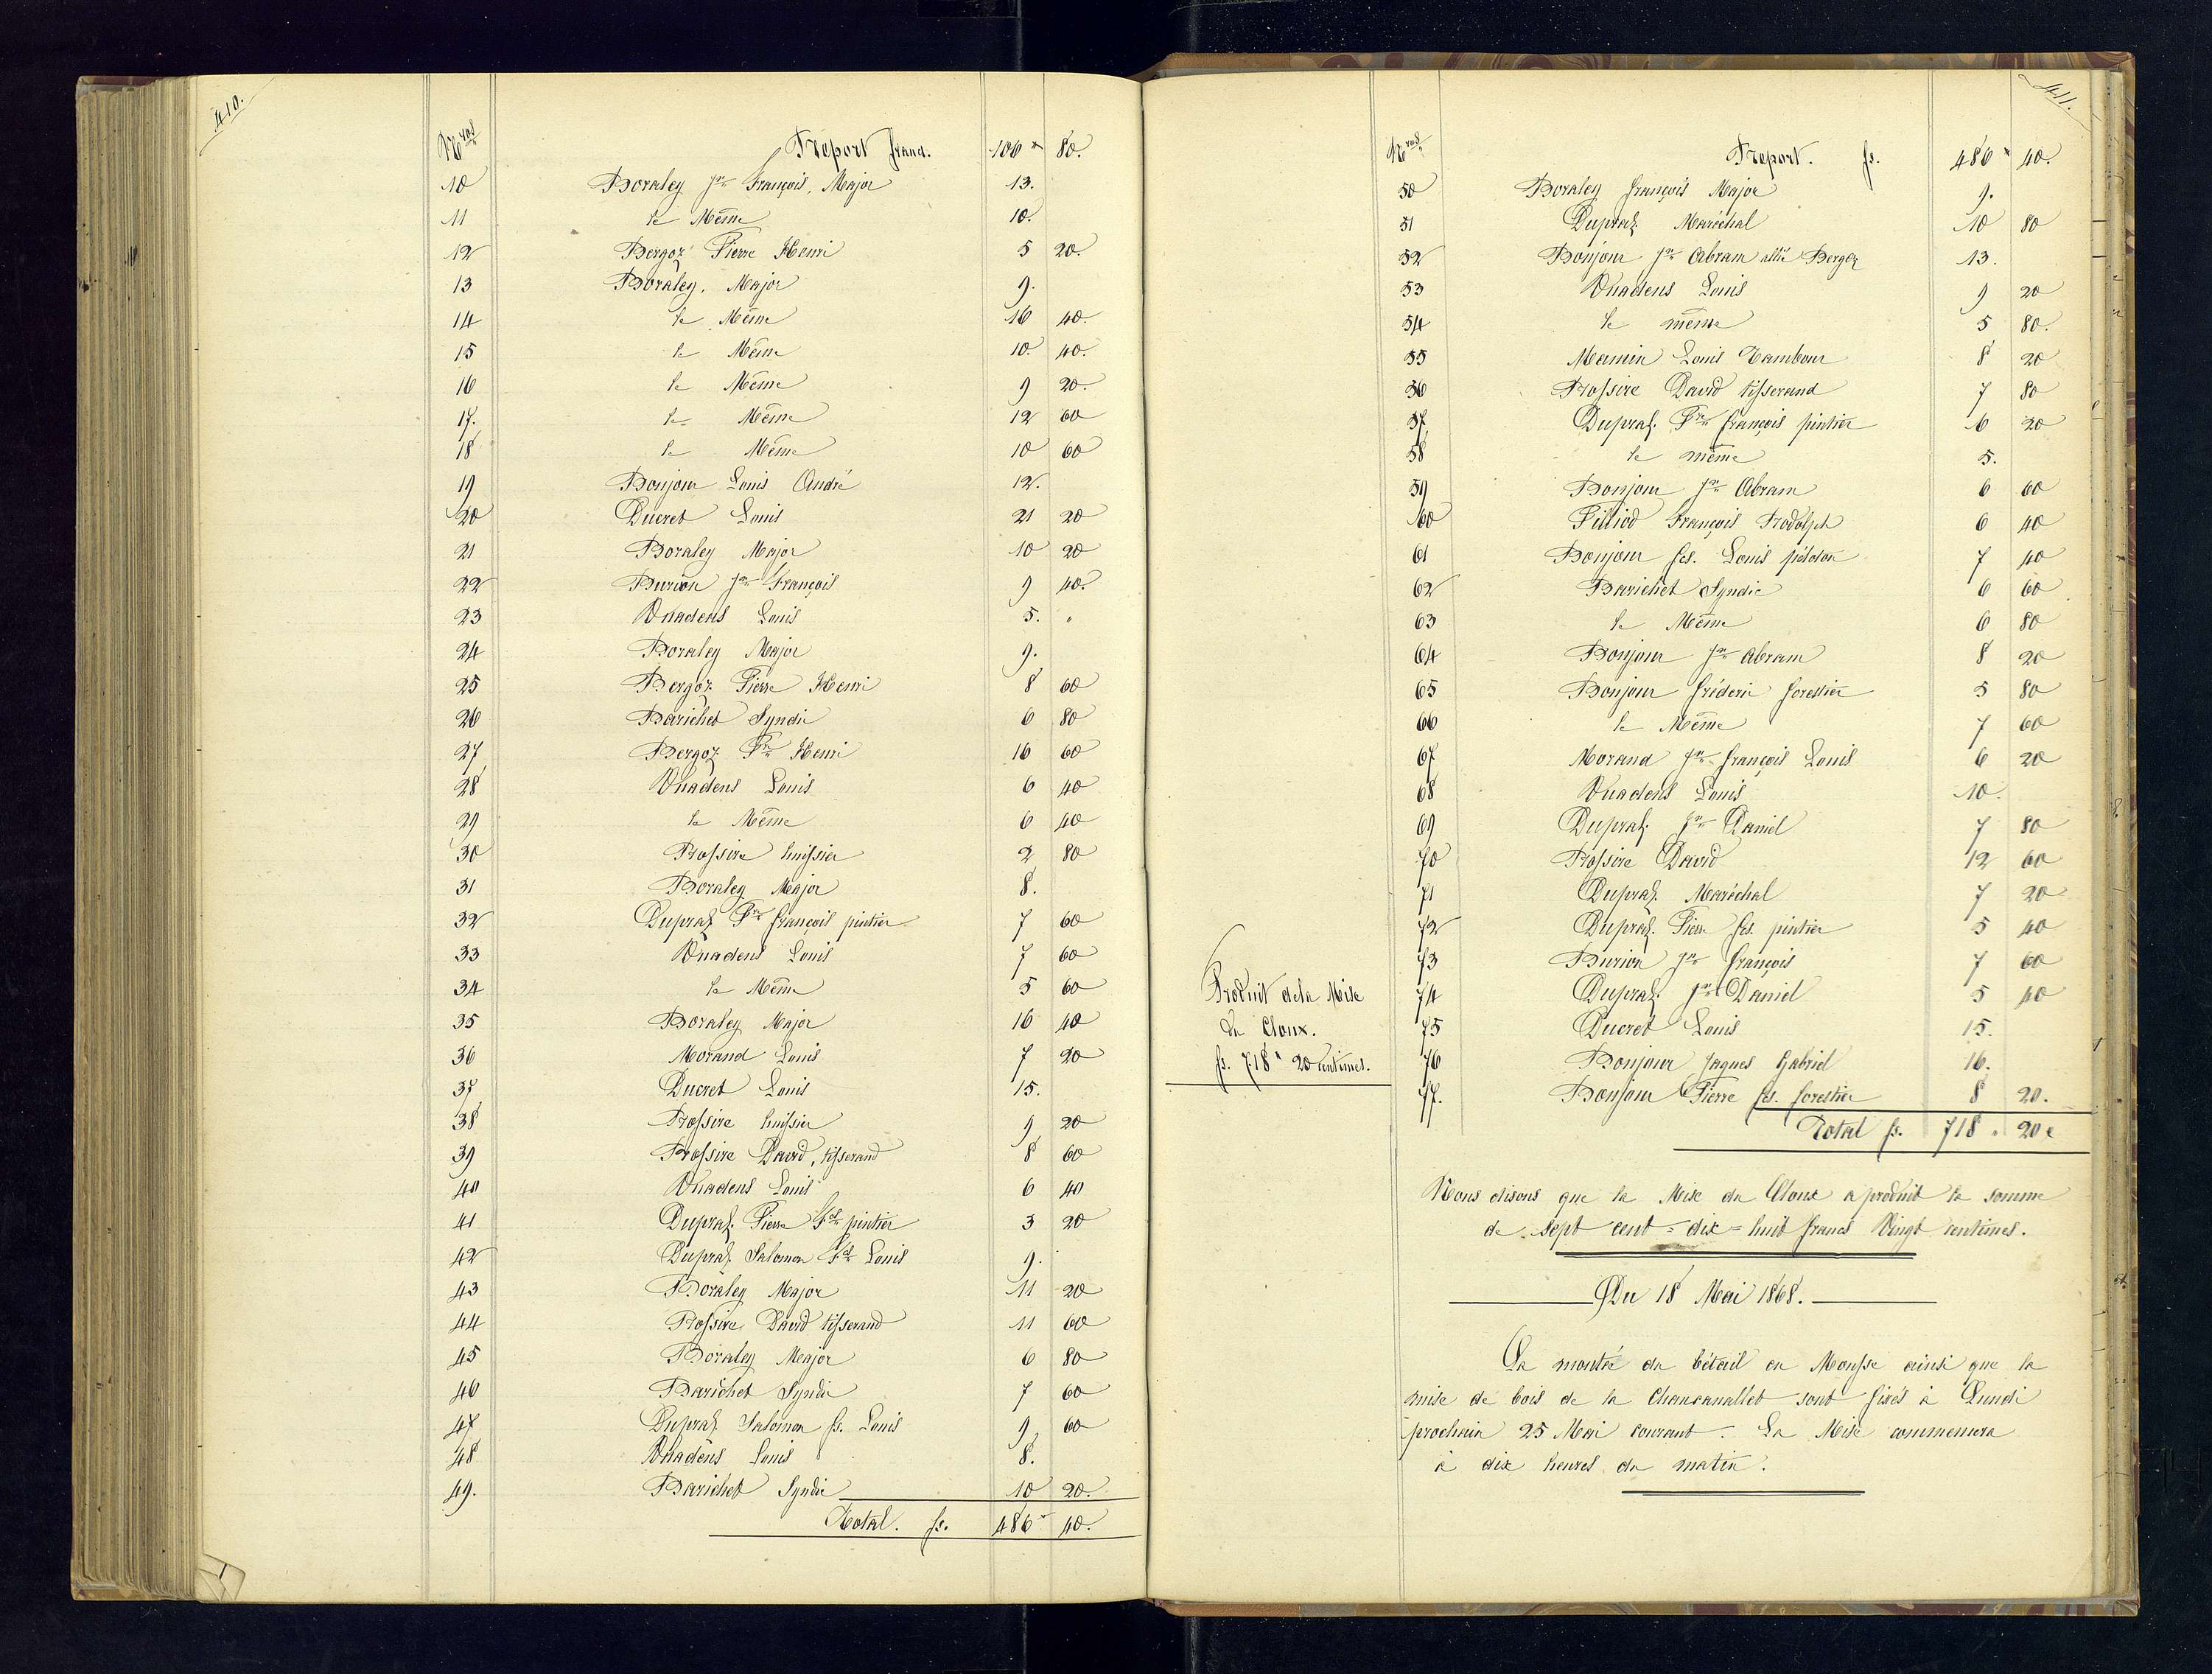 410.
N.ros Report franc. 106 " 80.
10 Boraley Jn François, Major 13.
11 le Même 10.
12 Bergoz Pierre Henri 5 20.
13 Boraley, Major 9.
14 le Même 16 40.
15 le Même 10. 40.
16 le Même 9 20.
17. le Même 12 60
18 le Même 10 60
19 Bonjour Louis André 12.
20 Ducret Louis 21 20
21 Boraley Major 10 20
22 Burion Jn François 9 40.
23 Quadens Louis 5. "
24 Boraley Major 9.
25 Bergoz Pierre Henri 8 60
26 Barichet Syndic 6 80
27 Bergoz Pre Henri 16 60
28 Quadens Louis 6 40
29 le Même 6 40
30 Rossire huissier 2 80
31 Boraley Major 8.
32 Dupraz Pre françois pintier 7 60
33 Quadens Louis 7 60
34 le Même 5 60
35 Boraley Major 16 40
36 Morand Louis 7 20
37 Ducret Louis 15.
38 Rossire huissier 9 20
39 Rossire David, tisserand 8 60
40 Quadens Louis 6 40
41 Dupraz Pierre Fs pintier 3 20
42 Dupraz Salomon Fs Louis 9.
43 Boraley Major 11 20
44 Rossire David tisserand 11 60
45 Boraley Major 6 80
46 Barichet Syndic 7 60
47 Dupraz Salomon fs. Louis 9 60
48 Quadens Louis 8.
49. Barichet Syndic 10 20.
Total. fs. 486 " 40.
411.
N.ros Report. fs. 486 " 40.
50 Boraley françois Major 9.
51 Dupraz Maréchal 10 80
52 Bonjour Jn Abram allié Berger 13.
53 Quadens Louis 9 20
54 le même 5 80.
55 Mamin Louis Tambour 8 20
56 Rossire David tisserand 7 80
57. Dupraz Pre françois pintier 6 20
58 le même 5.
59 Bonjour Jn Abram 6 60
60 Pilliod François Rodolph 6 40
61 Bonjour fçs. Louis piéton 7 40
62 Barichet Syndic 6 60
63 le Même 6 80
64 Bonjour Jn Abram 8 20
65 Bonjour fréderic forestier 5 80
66 le Même 7 60
67 Morand Jn françois Louis 6 20
68 Quadens Louis 10
69 Dupraz Jn Daniel 7 80
70 Rossire David 12 60
71 Dupraz Maréchal 7 20
72 Dupraz Pierre fçs. pintier 5 40
73 Burion Jn françois 7 60
74 Dupraz Jn Daniel 5 40
75 Ducret Louis 15.
76 Bonjour Jaques Gabriel 16.
77. Bonjour Pierre fçs. forestier 8 20.
Total fs. 718 . 20 c
Produit de la Mise
du Cloux.
fs. 718 " 20 centimes.
Nous disons que la Mise du Cloux a produit la somme
de sept cent = dix = huit francs Vingt centimes.
Du 18 Mai 1868.
La montée du bétail en Mousse ainsi que la
mise de bois de la sont fixés à Lundi
prochain 25 Mai courant. La Mise commencera
à dix heures du matin.